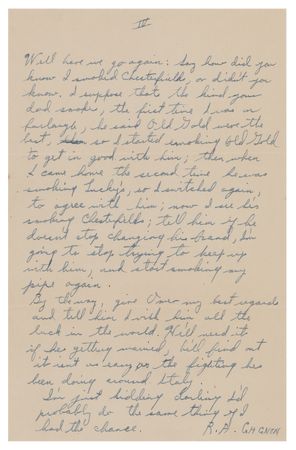 IV
Well here we go again: Say how did you
know I smoked Chesterfields, or didn't you
know. I suppose thats the kind your
dad smoke, the first time I was on
furlough, he said Old Gold were the
best, so I started smoking Old Gold
to get in good with him; then when
I came home the second time he was
smoking Lucky's, so I switched again,
to agree with him; now I see his
smoking Chesterfields; tell him if he
doesnt stop changing his brand, I'm
going to stop trying to keep up
with him, and start smoking my
pipe again.
By the way, give my best regards
and tell him I wish him all the
luck in the world. He'll need it
if he getting married, he'll find out
it isn't as easy as the fighting he's
been doing around Italy.
I'm just kidding darling I'd
probably do the same thing if I
had the chance. R. A. GAGNON